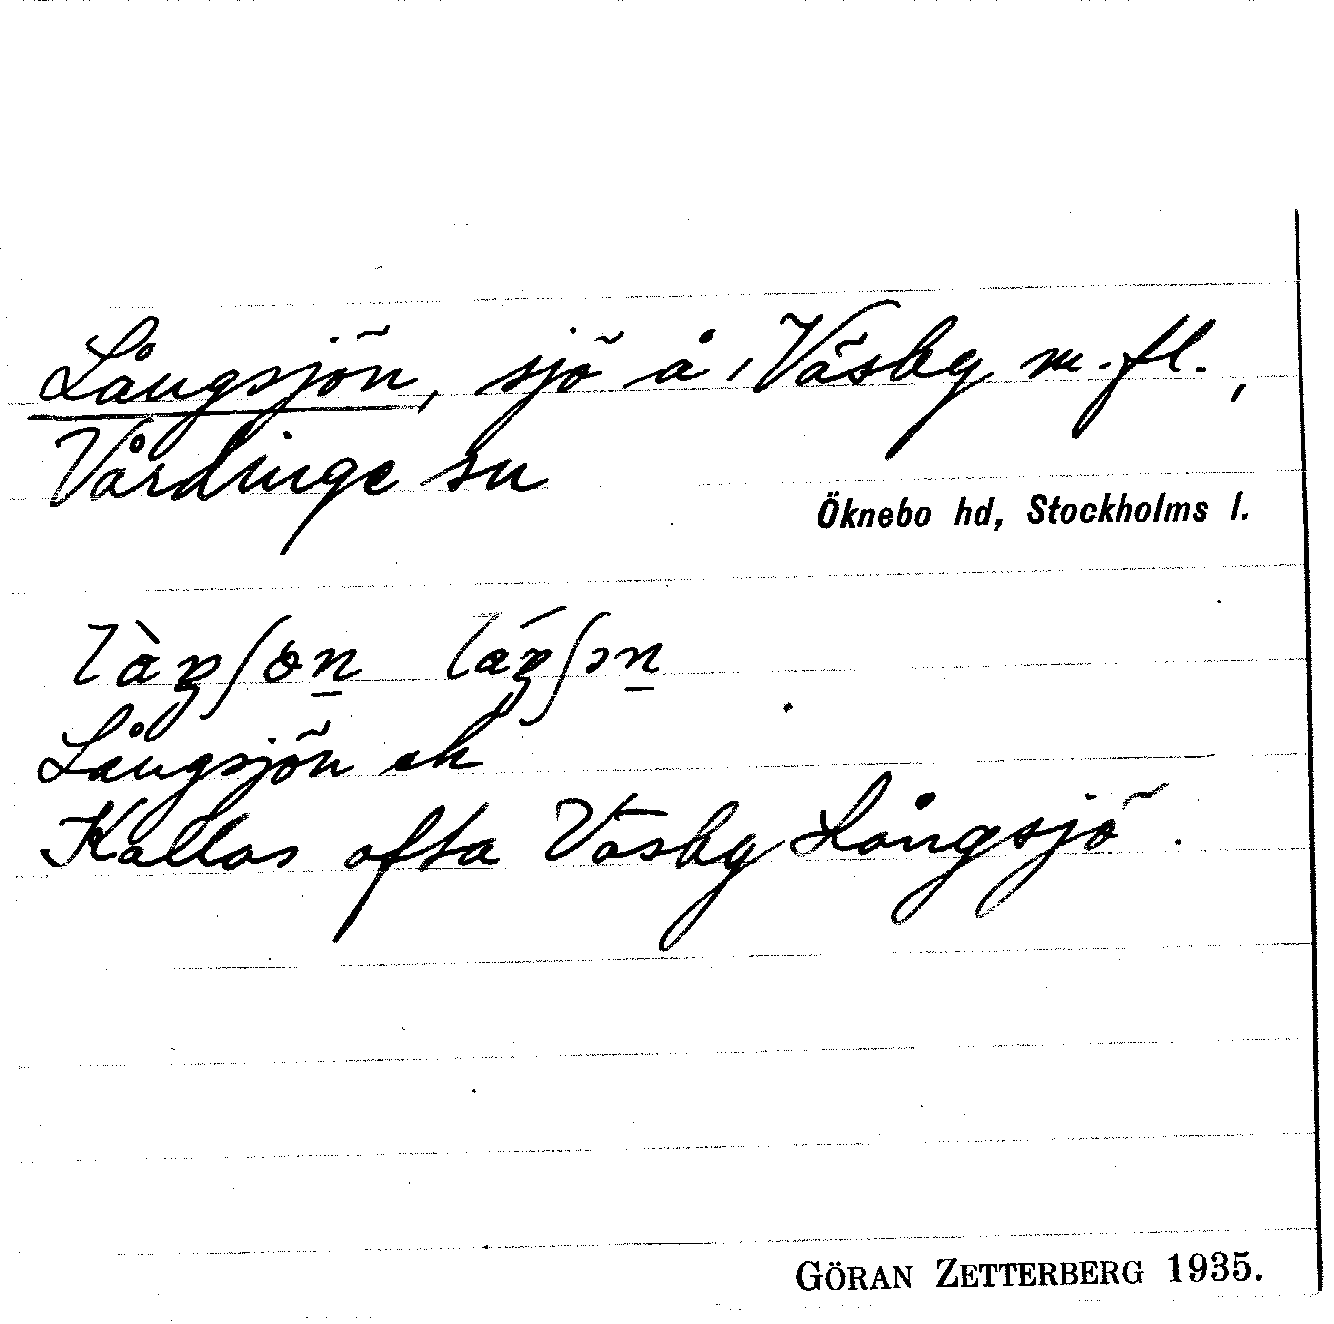 Långsjön, sjö å Väsby m.fl.,
Vårdinge sn
Öknebo hd, Stockholms l.
làŋʃɵn̲ láŋʃɔn̲
Långsjön ek
Kallas ofta Väsby Långsjö.
GÖRAN ZETTERBERG 1935.